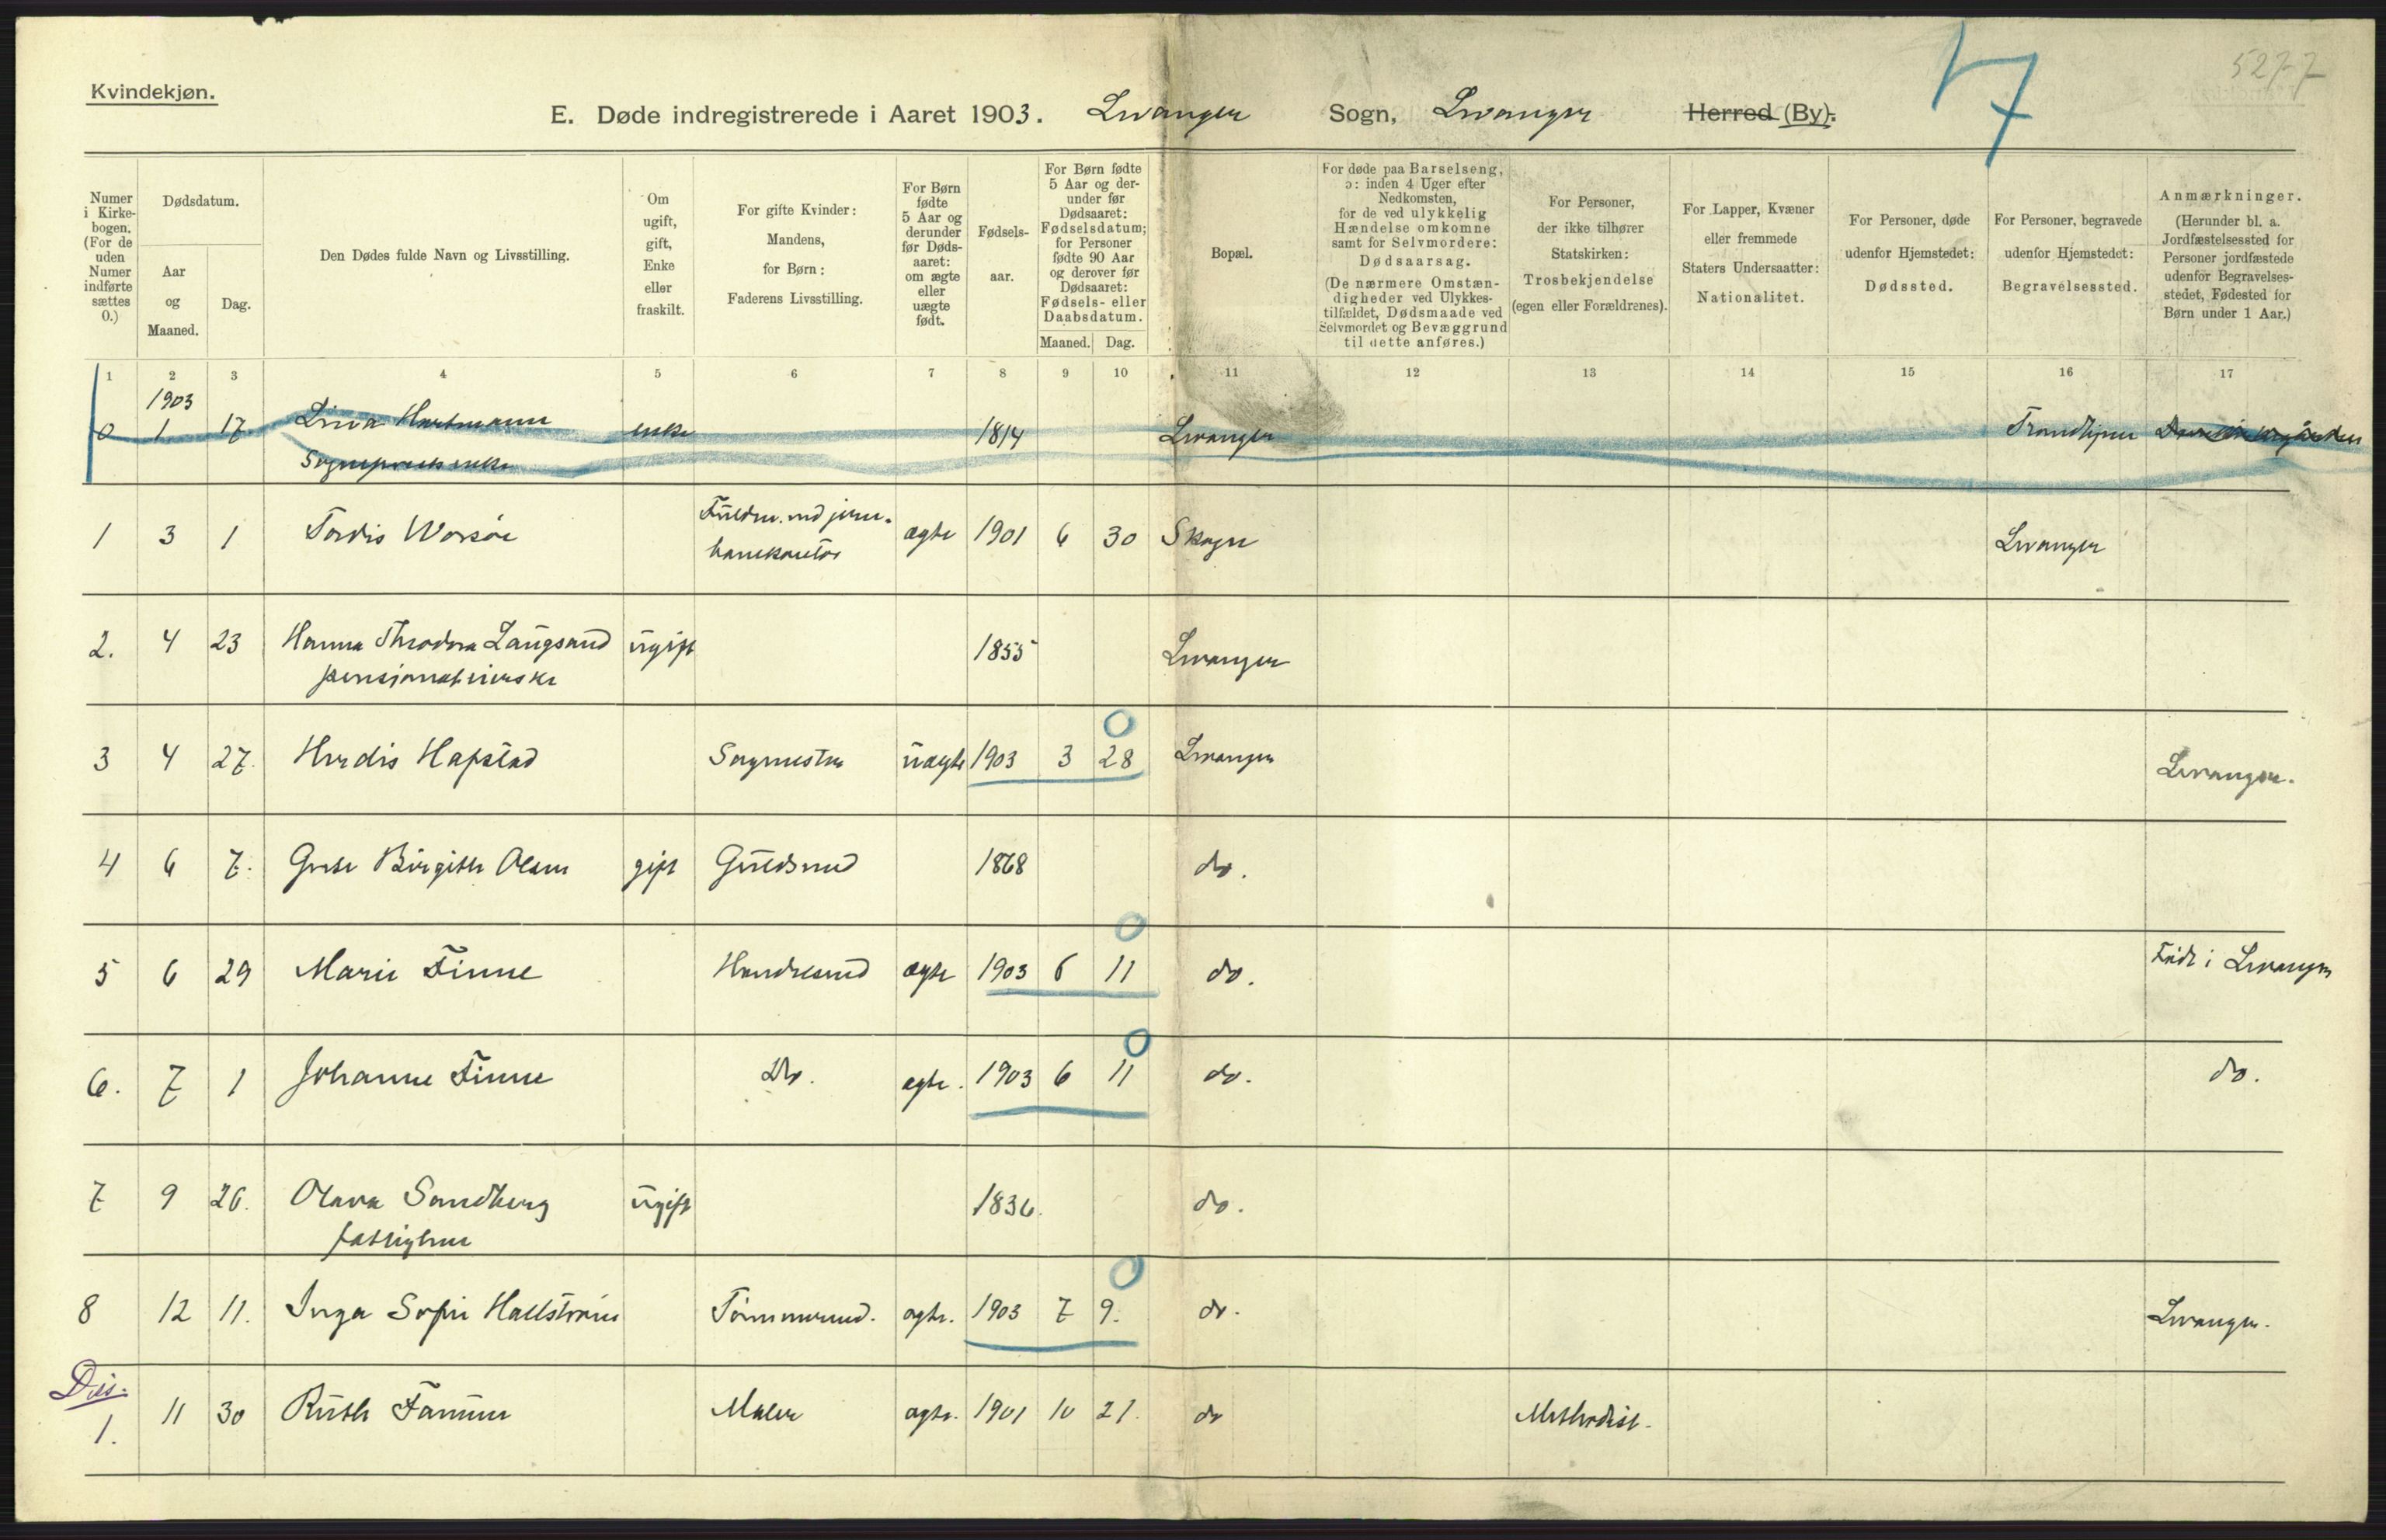 Kvindekjøn.
E. Døde indregistrerede i Aaret 1903. Levanger Sogn, Levanger Herred (By).
7
5277
Numer i Kirkebogen. (For de uden Numer indførte sættes 0.)
Dødsdatum.
Aar og Maaned.
Dag.
Den Dødes fulde Navn og Livsstilling.
Om ugift, gift, Enke eller fraskilt.
For gifte Kvinder: Mandens, for Børn: Faderens Livsstilling.
For Børn fødte 5 Aar og derunder før Dødsaaret: om ægte eller uægte født.
Fødselsaar.
For Børn fødte 5 Aar og derunder før Dødsaaret: Fødselsdatum; for Personer fødte 90 Aar og derover før Dødsaaret: Fødsels- eller Daabsdatum.
Maaned. Dag.
Bopæl.
For døde paa Barselseng, ɔ: inden 4 Uger efter Nedkomsten, for de ved ulykkelig Hændelse omkomne samt for Selvmordere: Dødsaarsag. (De nærmere Omstændigheder ved Ulykkestilfældet, Dødsmaade ved Selvmordet og Bevæggrund til dette anføres.)
For Personer, der ikke tilhører Statskirken: Trosbekjendelse (egen eller Forældrenes).
For Lapper, Kvæner eller fremmede Staters Undersaatter: Nationalitet.
For Personer, døde udenfor Hjemstedet: Dødssted.
For Personer, begravede udenfor Hjemstedet: Begravelsessted.
Anmærkninger. (Herunder bl. a. Jordfæstelsessted for Personer jordfæstede udenfor Begravelsesstedet, Fødested for Børn under 1 Aar.)
1 2 3 4 5 6 7 8 9 10 11 12 13 14 15 16 17
1903
0 1 17 Lina Hartmann enke 1814 Levanger Trondhjem
Sogneprests enke
1 3 1 Tordis Worsøe Fuldm. ved jernbanekontor ægte 1901 6 30 Skogn Levanger
2. 4 23 Hanna Theodora Langsand ugift 1855 Levanger
pensjonatvierske
3 4 27. Herdis Hafstad Sagmester uægte 1903 3 28 Levanger Levanger.
4 6 7. Grete Birgitte Olsen gift Guldsmed 1868 do.
5 6 29 Marie Finne Handelsmd ægte 1903 6 11 do. Født i Levanger
6. 7 1 Johanne Finne Do. ægte. 1903 6 11 do. do.
7 9 26. Olava Sandberg ugift 1836. do.
fattiglem
8 12 11. Inga Sofie Hallstrøm Tømmermd. ægte. 1903 7 9. do. Levanger.
Dis.
1. 11 30 Ruth Famme Maler ægte. 1901 10 21. do Methodist.